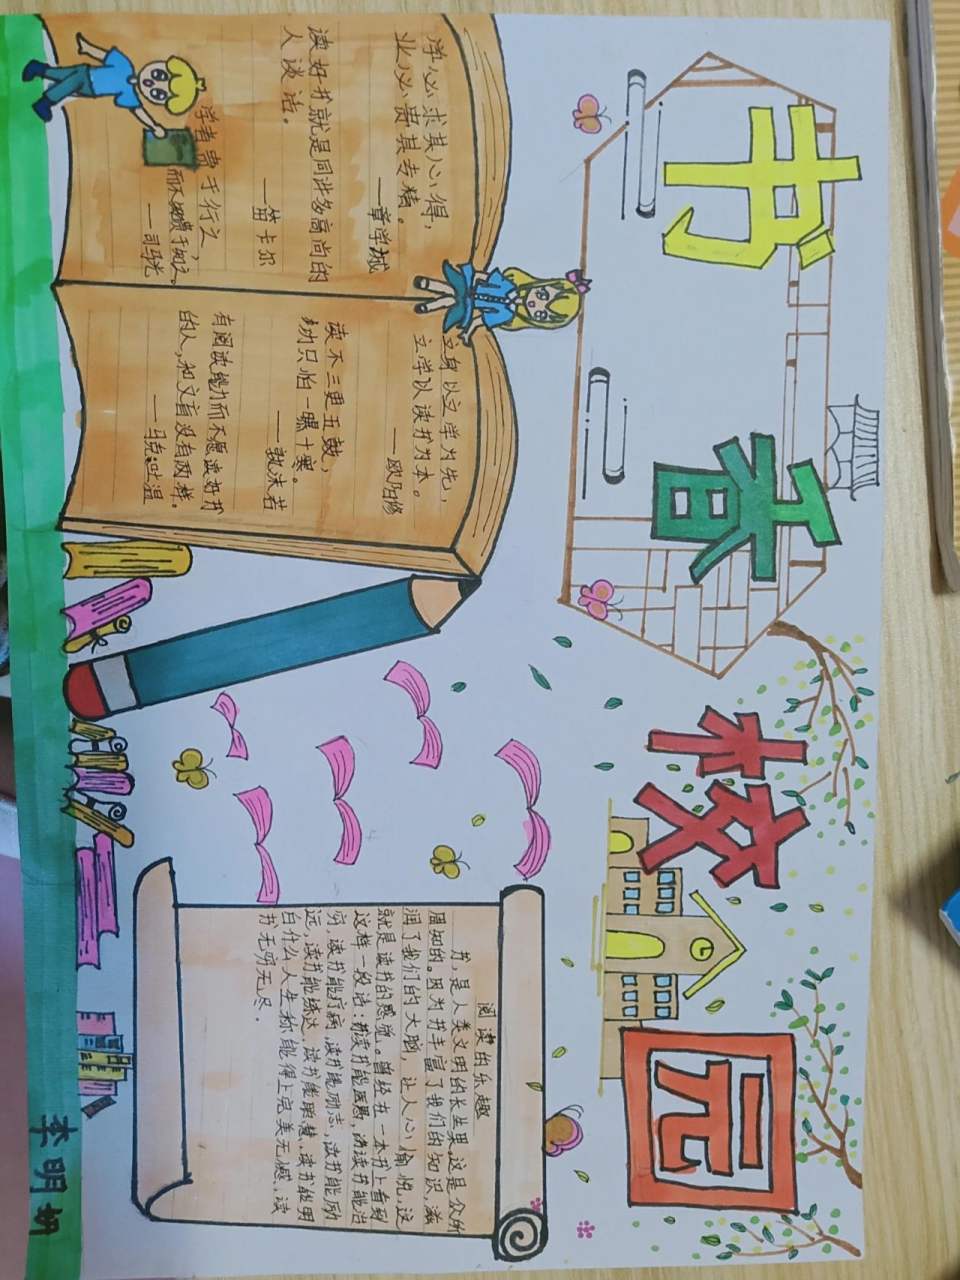 书香校园
学必求其心得，
业必贵其专精。
——章学诚
读好书就是同许多高尚的
人谈话。
——笛卡尔
学者贵于行之，
而不贵于知之。
——司马光
立身以立学为先，
立学以读书为本。
——欧阳修
读不三更五鼓，
功只怕一曝十寒。
——郭沫若
有阅读能力而不愿读好书
的人，和文盲没有两样。
——马克·吐温
阅读的乐趣
书，是人类文明的长生果。这是众所
周知的。因为书丰富了我们的知识，滋
润了我们的大脑，让人心愉悦，这
就是读书的感觉。曾经在一本书上看到
这样一段话：读书能医愚，读书能治
穷，读书能疗病，读书能励志，读书能励
远，读书能练达，读书能聪慧，读书能明
白什么人生称能得上完美无憾，读
书无所无尽．
李明